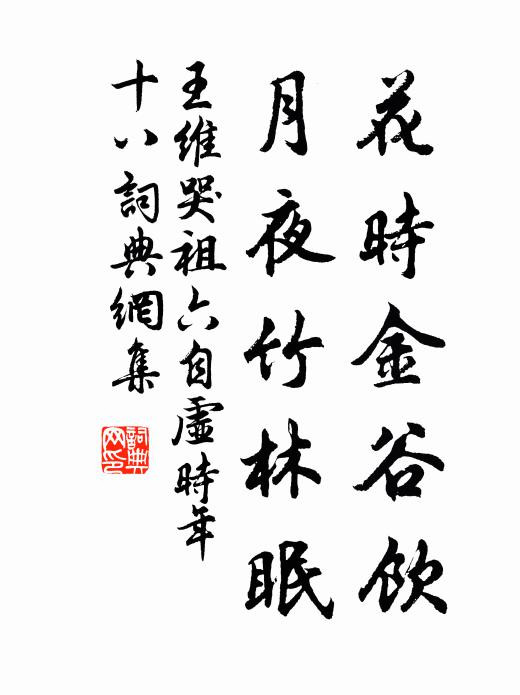 花時金谷飲
月夜竹林眠
王維哭祖六自虛時年
十八詞典網集
詞典
网印